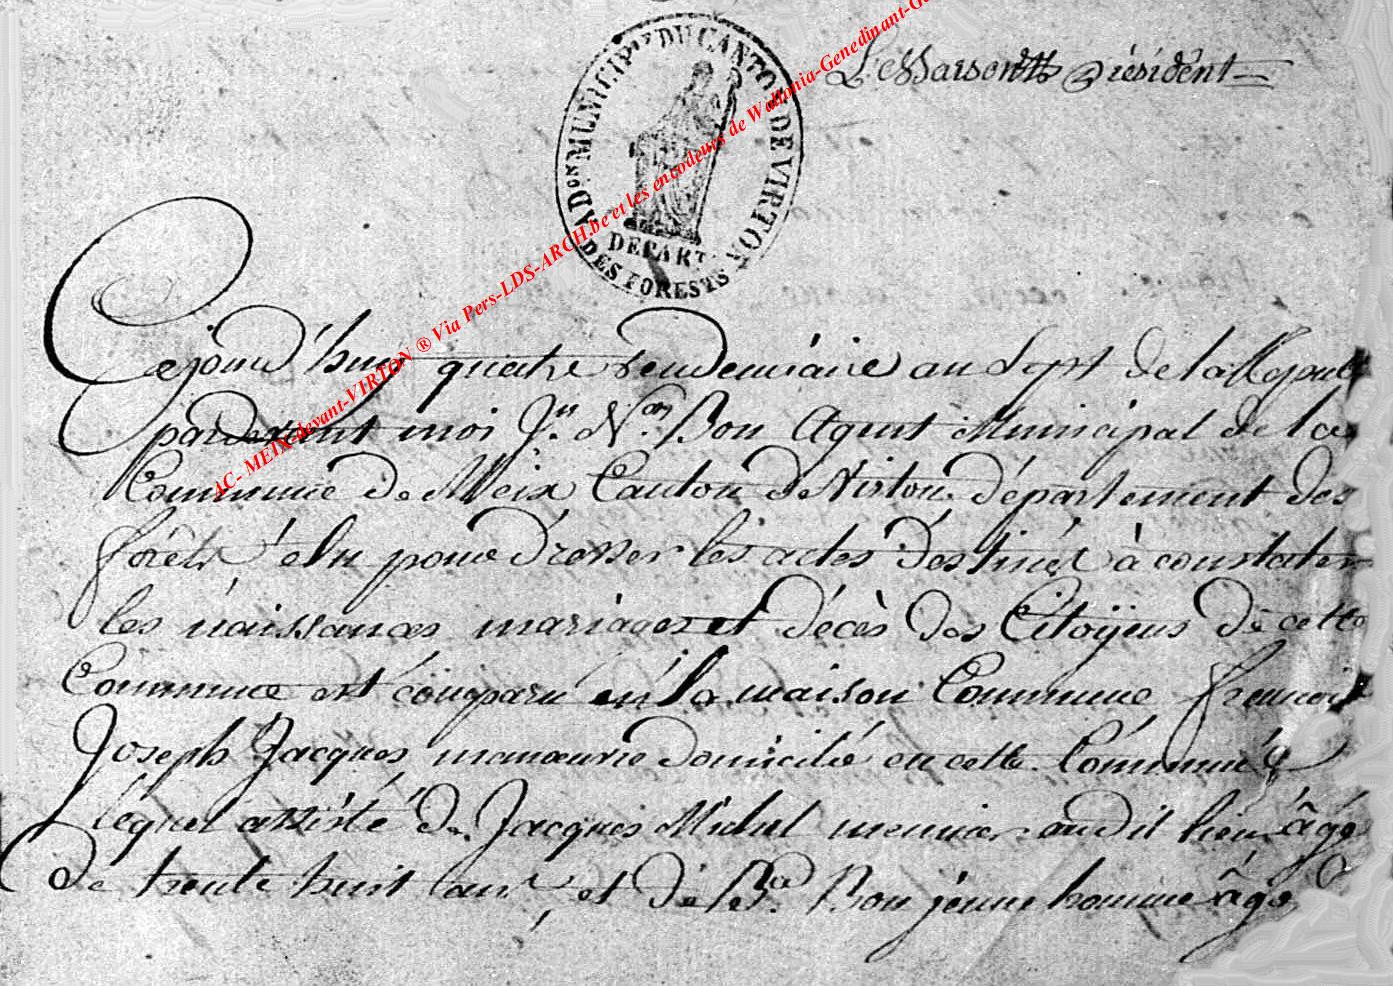 AD^on MUNICIP^le DU CANTON DE VIRTON
DEPART^t
DES FORESTS
président
AC- MEIX-devant-VIRTON ® Via Pers-LDS-ARCH.be et les encodeurs de Wallonia-Genedinant-Ge
Cejourd'huy quatre vendemiaire an Sept de la Repub
pardevant moi J^n. N^as. Bon Agent Municipal de la
Commune de Meix Canton de Virton département des
forêts élu pour dresser les actes destinés à constater
les naissances mariages et décès des Citoÿens de cette
Commune est comparu en la maison Commune francois
Joseph Jacques manoeuvre domicilié en cette Commune
lequel assisté de Jacques Michel meunier audit lieu âgé
de trente huit ans, et de Bon jeune homme âgé